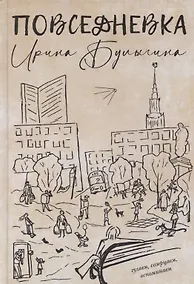 ПОВСЕДНЕВКА
Ирина Булыгина
гуляем, селфуемся,
вспоминаем